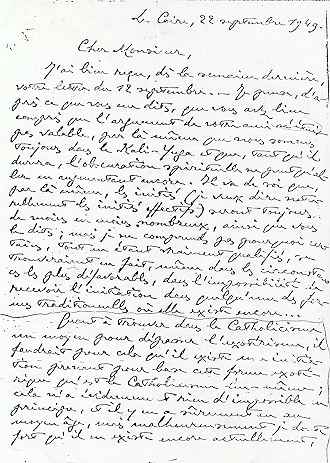 Le Caire, 22 septembre 1949.
Cher Monsieur,
J'ai bien reçu, dès la semaine dernière,
votre lettre du 12 septembre. – Je pense, d'a-
près ce que vous me dites, que vous avez bien
compris que l'argument de votre ami n'était
pas valable, par là même que nous sommes
toujours dans le Kali-Yuga et que, tant qu'il
durera, l'obscuration spirituelle ne peut qu'al-
ler en augmentant encore. Il va de soi que,
par là même, les initiés (je veux dire natu-
rellement les initiés effectifs) seront toujours
de moins en moins nombreux, ainsi que vous
le dites ; mais je ne comprends pas pourquoi cer-
tains, tout en étant vraiment qualifiés, se
trouveraient en fait, même dans les circonstan-
ces les plus défavorables, dans l'impossibilité de
recevoir l'initiation dans quelqu'une des for-
mes traditionnelles où elle existe encore...
Quant à trouver dans le Catholicisme
un moyen pour dépasser l'exotérisme, il
faudrait pour cela qu'il existe une initia-
tion prenant pour base cette forme exoté-
rique qu'est le Catholicisme lui-même ;
cela n'a évidemment rien d'impossible en
principe, et il y en a sûrement eu au
moyen âge, mais malheureusement je doute
fort qu'il en existe encore actuellement,